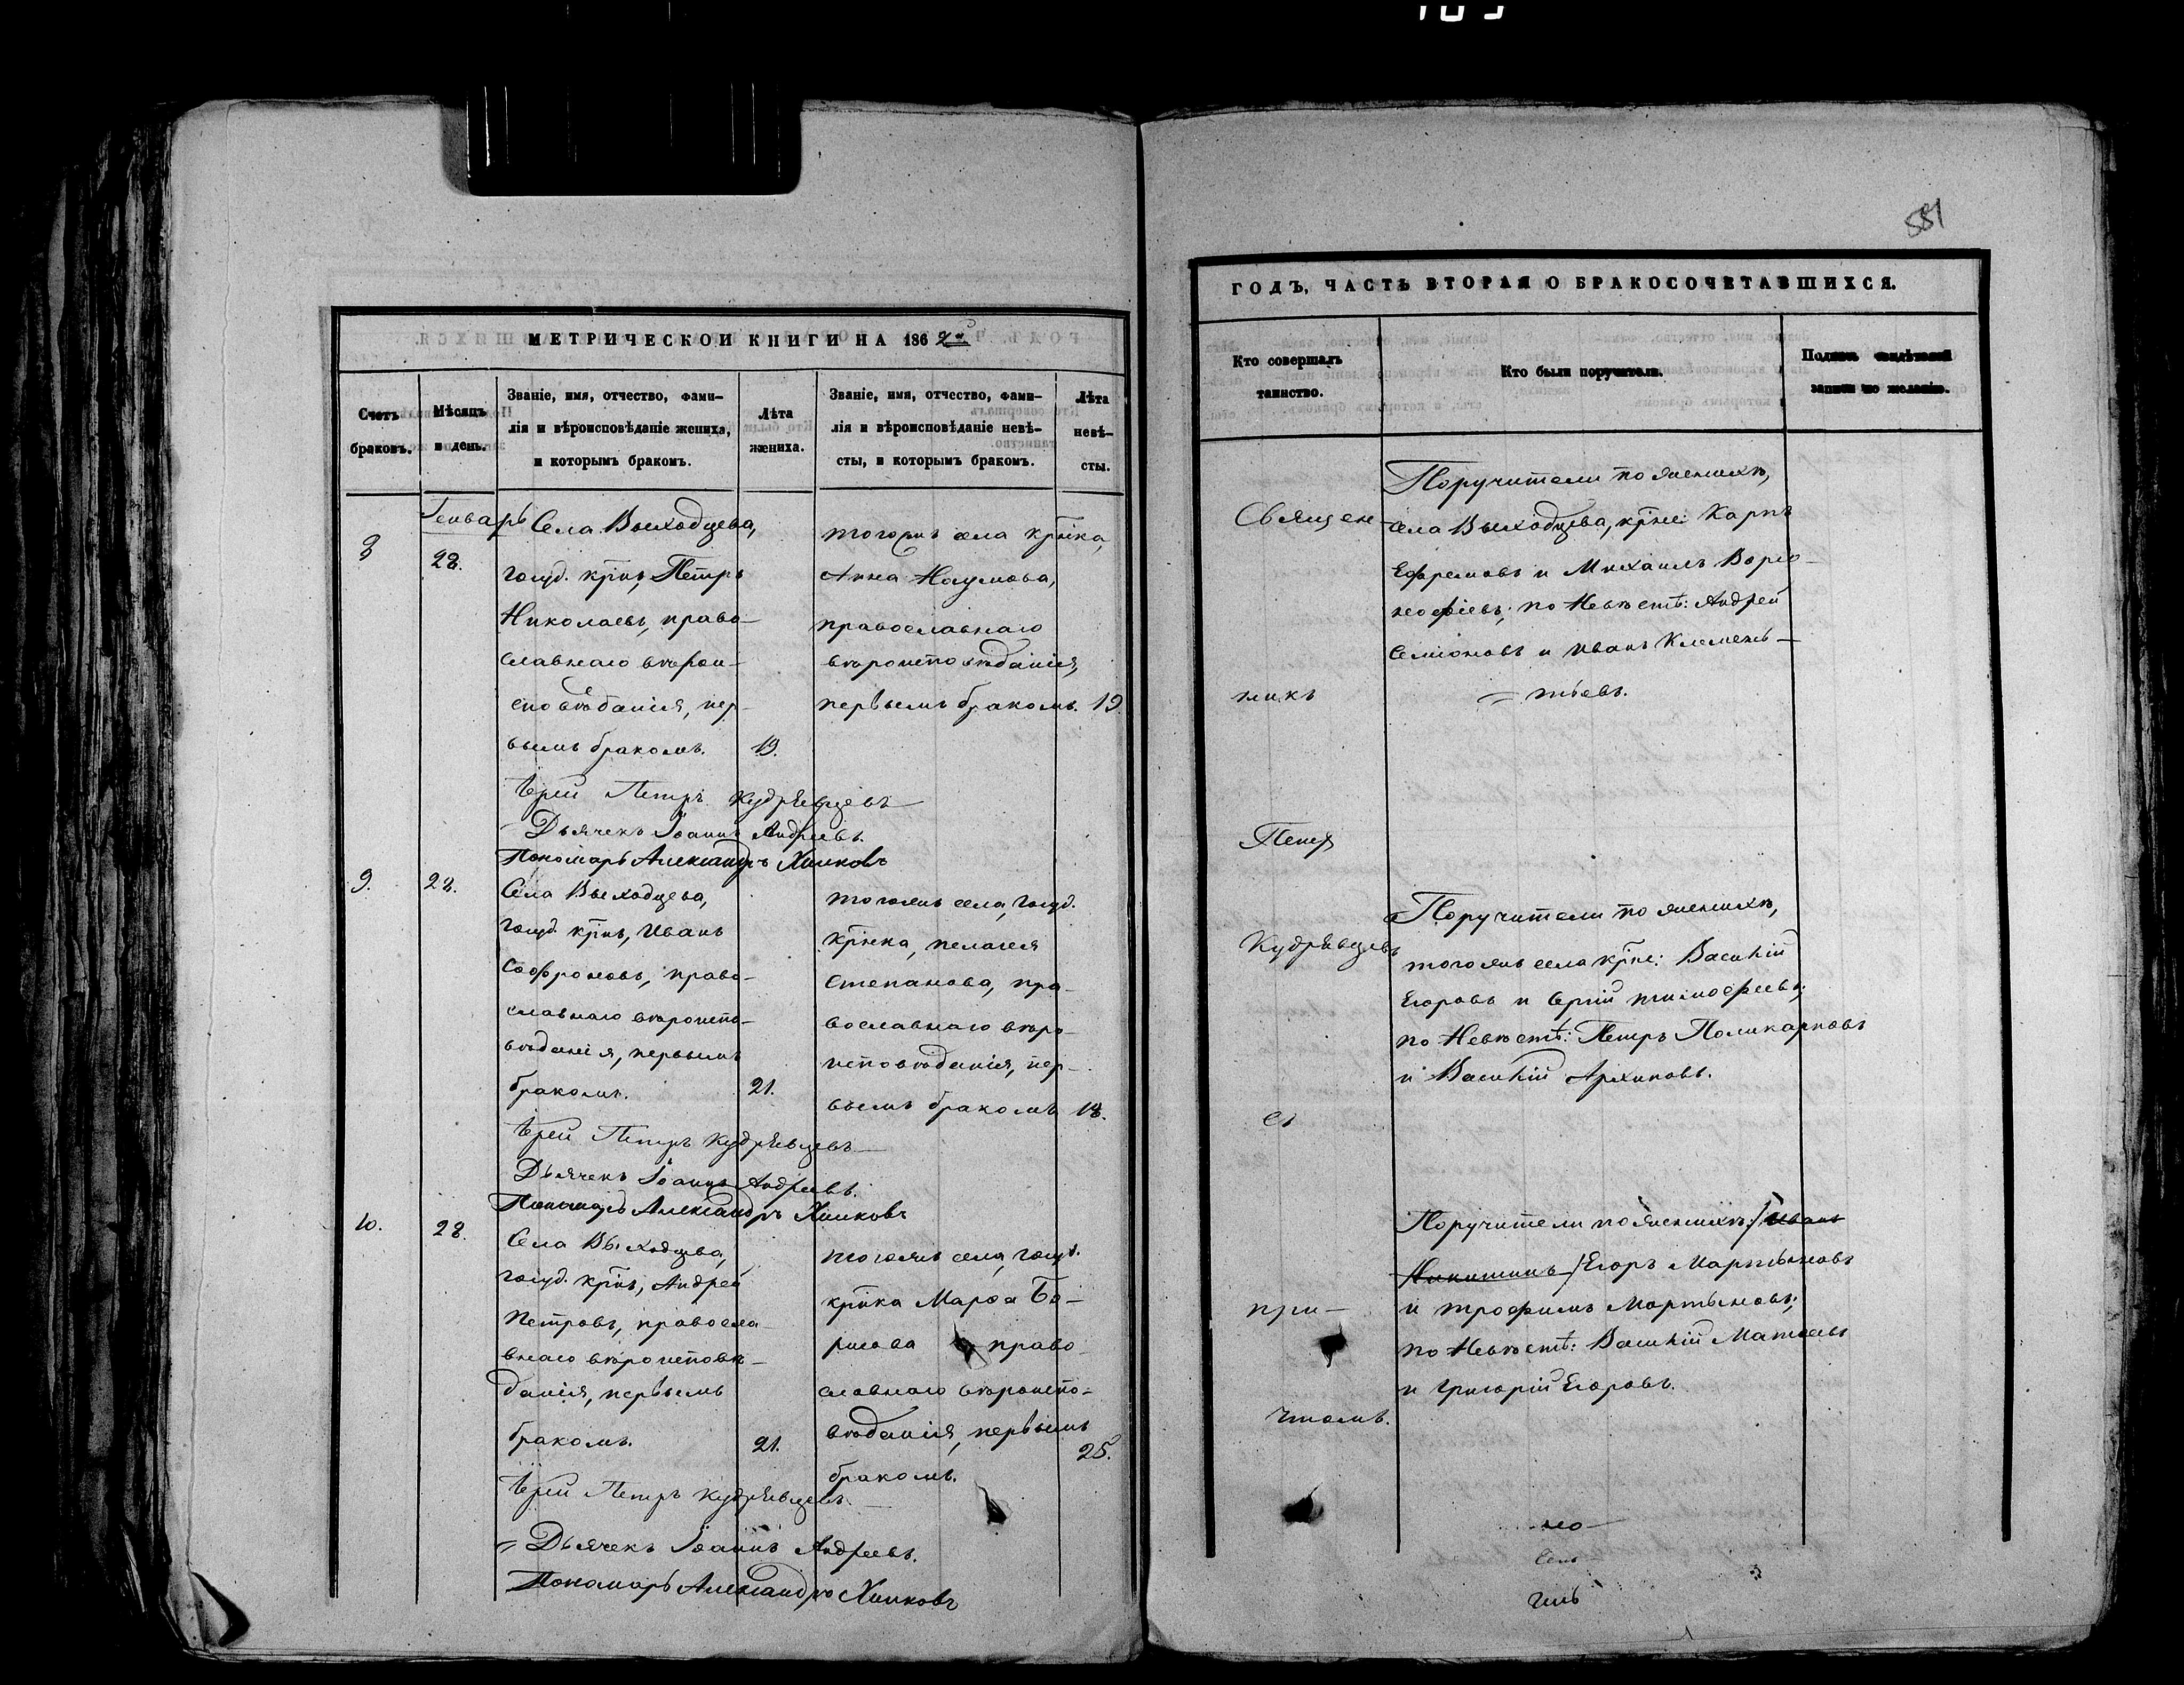 581
МЕТРИЧЕСКОЙ КНИГИ НА 1862й
Счетъ браковъ.
Мѣсяцъ и день.
Званіе, имя, отчество, фами-
лія и вѣроисповѣданіе жениха,
и которымъ бракомъ.
Лѣта жениха.
Званіе, имя, отчество, фами-
лія и вѣроисповѣданіе невѣ-
сты, и которымъ бракомъ.
Лѣта невѣ-
сты.
8
Генварь
28.
Села Выходцева,
госуд. крнъ, Петръ
Николаевъ, право-
славнаго вѣрои-
сповѣданія, пер-
вымъ бракомъ.
19.
тогожъ села крнка,
Анна Наумова,
православнаго
вѣроисповѣданія,
первымъ бракомъ.
19.
Іерей Петръ Кудрявцевъ
Дьячекъ Іоаннъ Андреевъ.
Пономарь Александръ Хилковъ
9.
28.
Села Выходцева,
госуд. крнъ, Иванъ
Софроновъ, право-
славнаго вѣроиспо-
вѣданія, первымъ
бракомъ.
21.
тогожъ села, госуд.
крнка, Пелагея
Степанова, пра-
вославнаго вѣро-
исповѣданія, пер-
вымъ бракомъ
18.
Іерей Петръ Кудрявцевъ
Дьячекъ Іоаннъ Андреевъ.
Пономарь Александръ Хилковъ
10.
28.
Села Выходцева,
госуд. крнъ, Андрей
Петровъ, правосла-
внаго вѣроисповѣ-
данія, первымъ
бракомъ.
21.
тогожъ села, госуд.
крнка Марѳа Бо-
рисова право-
славнаго вѣроиспо-
вѣданія, первымъ
бракомъ.
25.
Іерей Петръ Кудрявцевъ
Дьячекъ Іоаннъ Андреевъ.
Пономарь Александръ Хилковъ
ГОДЪ, ЧАСТЬ ВТОРАЯ О БРАКОСОЧЕТАВШИХСЯ.
Кто совершалъ
таинство.
Кто были поручители.
Подпись свидѣтелей
записи по желанію.
Священ-
никъ
Петръ
Кудрявцевъ
съ
при-
чтомъ.
Поручители по женихѣ,
села Выходцева, крне: Карпъ
Ефремовъ и Михаилъ Доро-
неофіевъ; по Невѣстѣ: Андрей
Семіоновъ и Иванъ Клемень-
тьевъ.
Поручители по женихѣ,
тогожъ села крне: Василій
Егоровъ и Сергій Тимофеевъ;
по Невѣстѣ: Петръ Поликарповъ
и Василій Архиповъ.
Поручители по женихѣ: Иванъ
Никитинъ Егоръ Мартыновъ
и Трофимъ Мартыновъ;
по Невѣстѣ: Василій Матвеевъ
и Григорій Егоровъ.